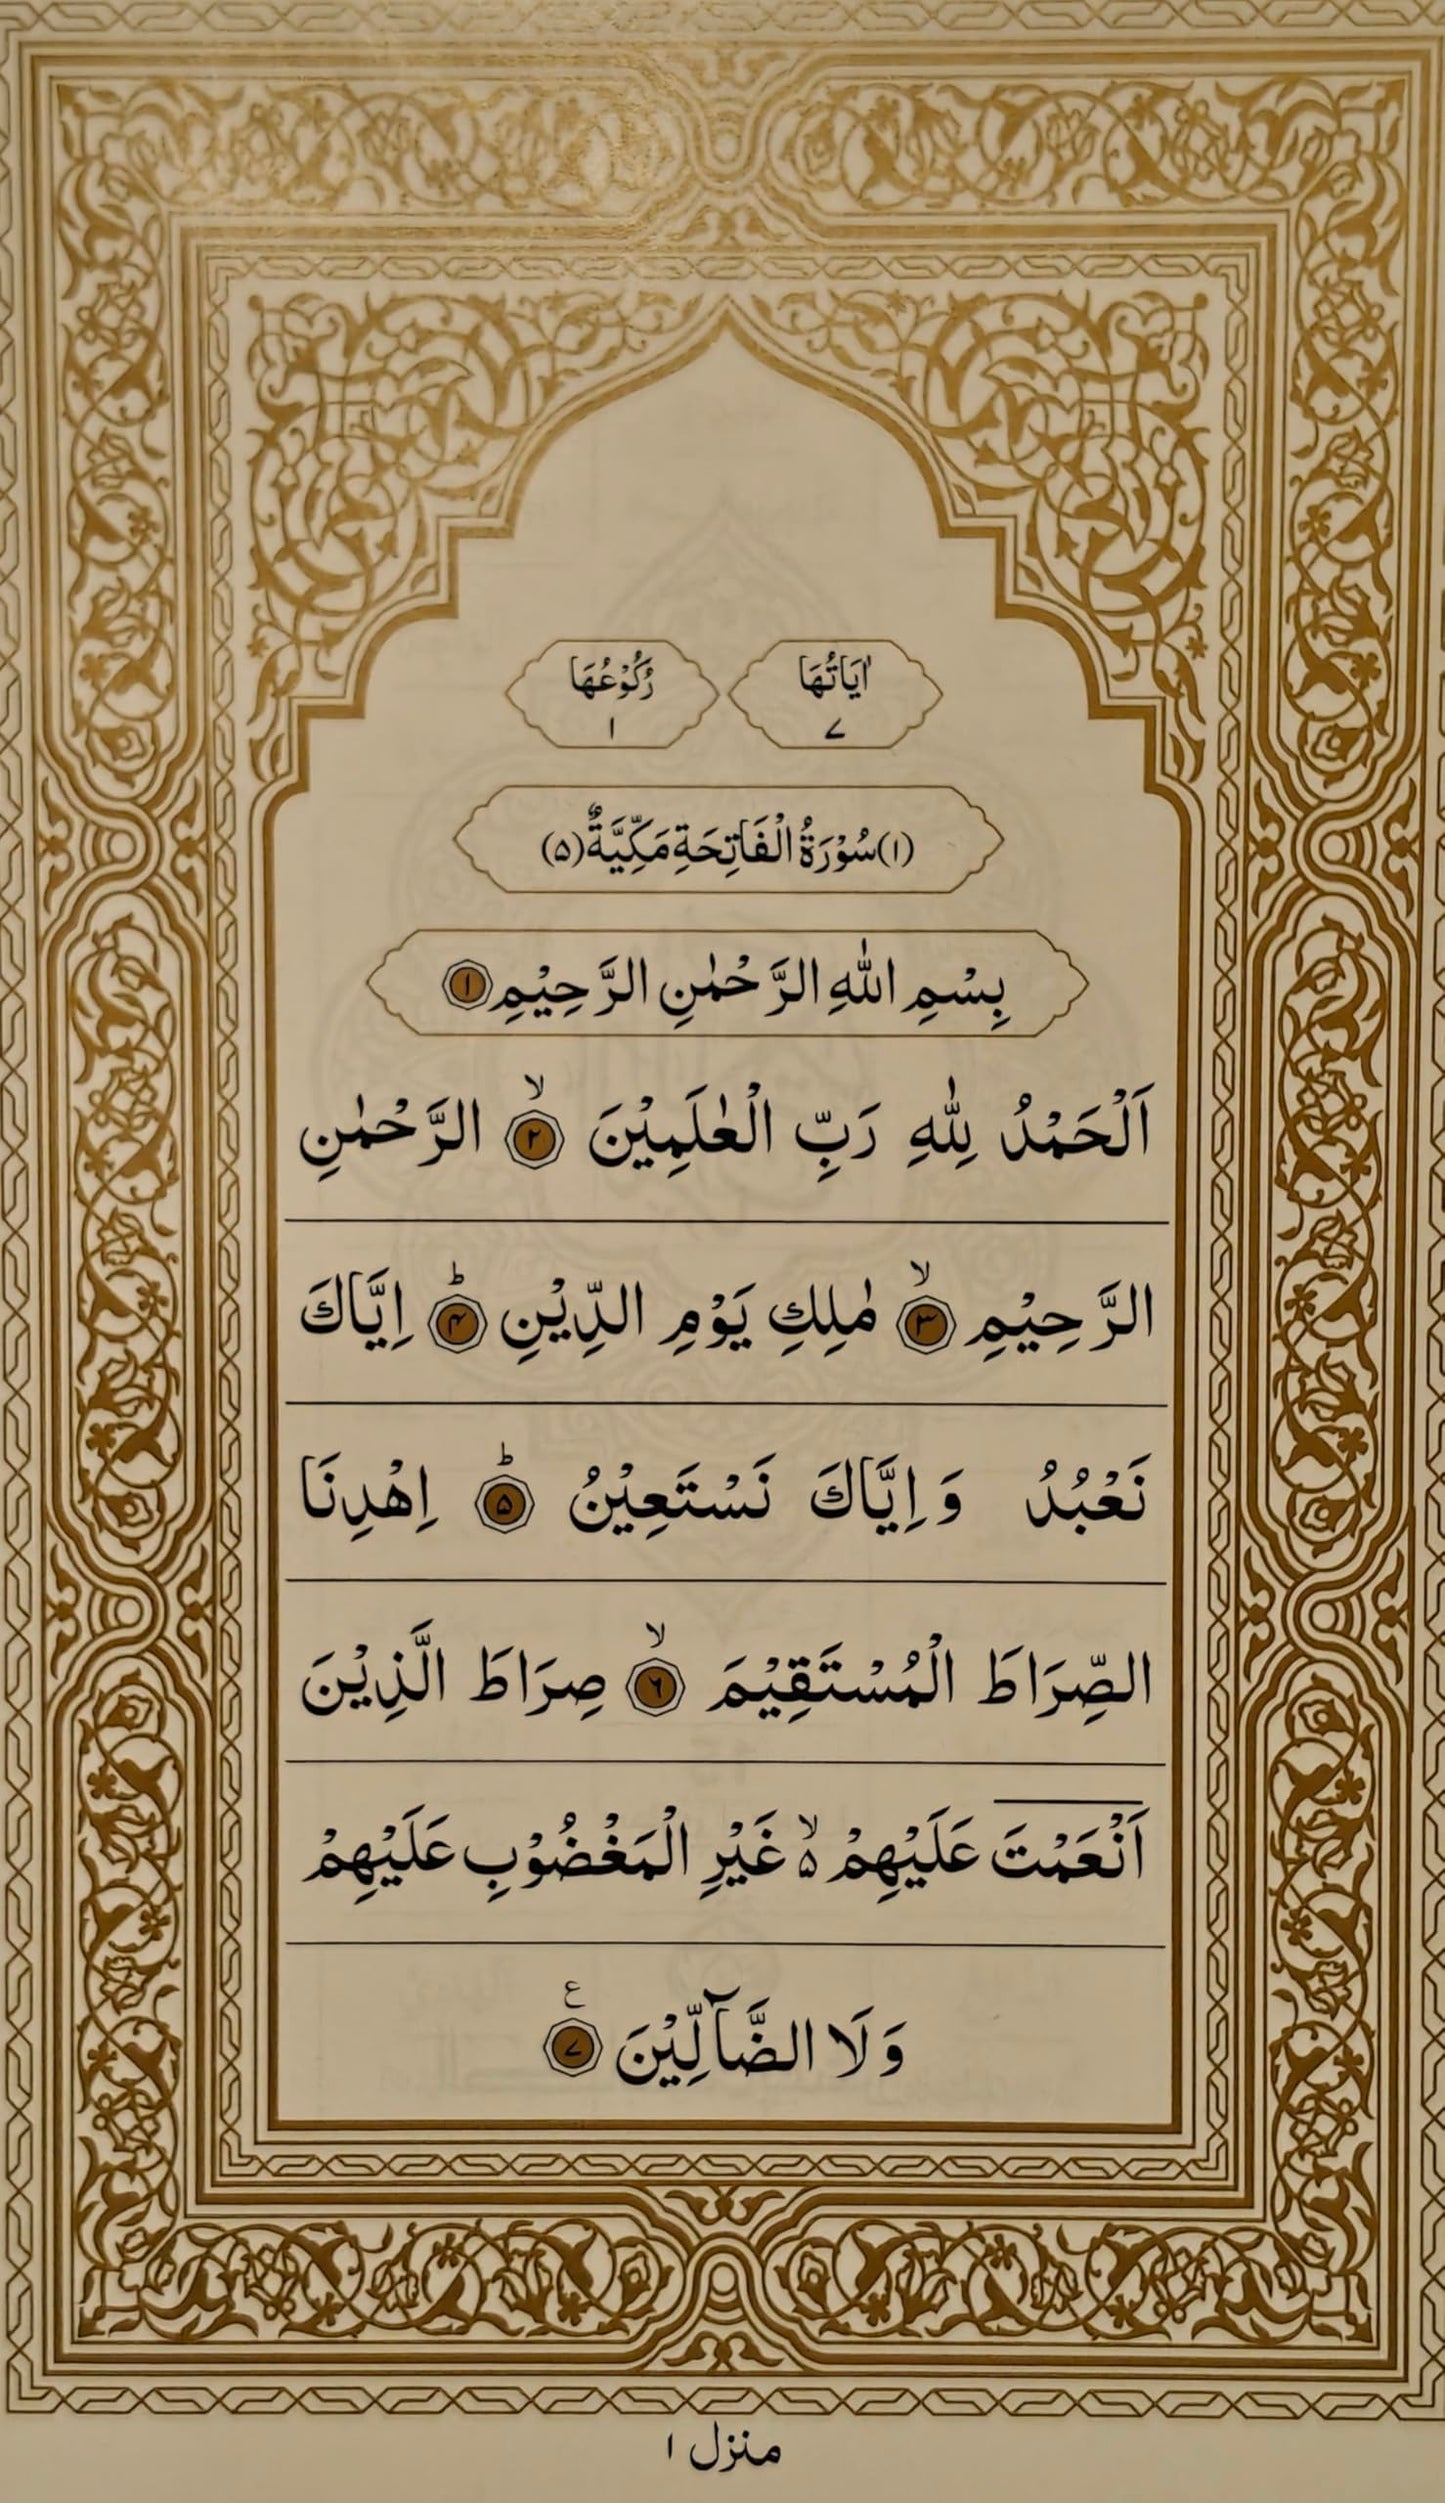 اٰيَاتُهَا رُكُوْعُهَا
۷ ۱
(۱) سُوْرَةُ الْفَاتِحَةِ مَكِّيَّةٌ (۵)
بِسْمِ اللّٰهِ الرَّحْمٰنِ الرَّحِيْمِ ۱
اَلْحَمْدُ لِلّٰهِ رَبِّ الْعٰلَمِيْنَ ۙ۲ الرَّحْمٰنِ
الرَّحِيْمِ ۙ۳ مٰلِكِ يَوْمِ الدِّيْنِ ؕ۴ اِيَّاكَ
نَعْبُدُ وَاِيَّاكَ نَسْتَعِيْنُ ؕ۵ اِهْدِنَا
الصِّرَاطَ الْمُسْتَقِيْمَ ۙ۶ صِرَاطَ الَّذِيْنَ
اَنْعَمْتَ عَلَيْهِمْ ۙ۵ غَيْرِ الْمَغْضُوْبِ عَلَيْهِمْ
وَلَا الضَّآلِّيْنَ ع ۷
منزل ۱